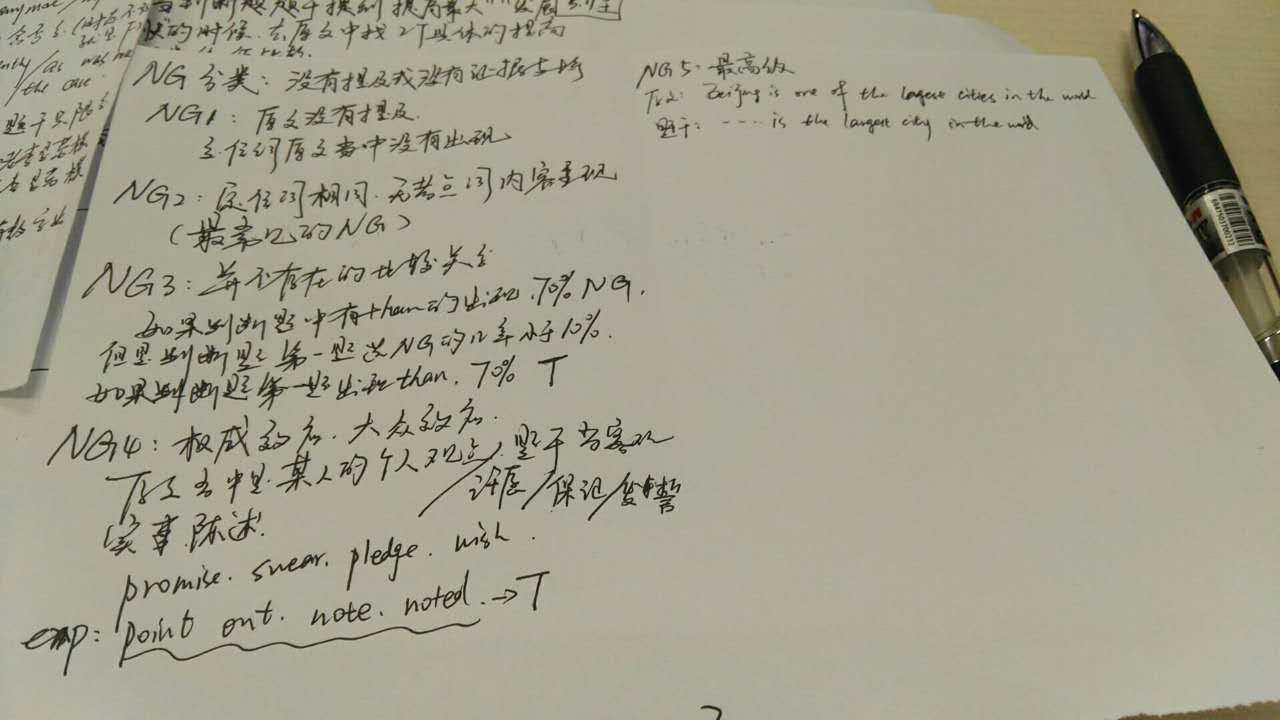 nymac/
的时候. 去原文中找2个具体的提高
the case
NG 分类: 没有提及或没有证据支撑
NG1: 原文没有提及.
定位词原文当中没有出现
NG2: 定位词相同. 无考点词内容呈现
(最常见的NG)
NG3: 并不存在的比较关系
如果判断题中有than的出现. 70% NG.
但是判断题第一题选NG的几率小于10%.
如果判断题第一题出现than. 70% T
NG4: 权威效应. 大众效应.
原文当中是某人的个人观点/题干当客观
许愿/保证/发誓
实事陈述.
promise. swear. pledge. wish.
exp: point out. note. noted. → T
NG5: 最高级
原文: Beijing is one of the largest cities in the world
题干: ---- is the largest city in the world